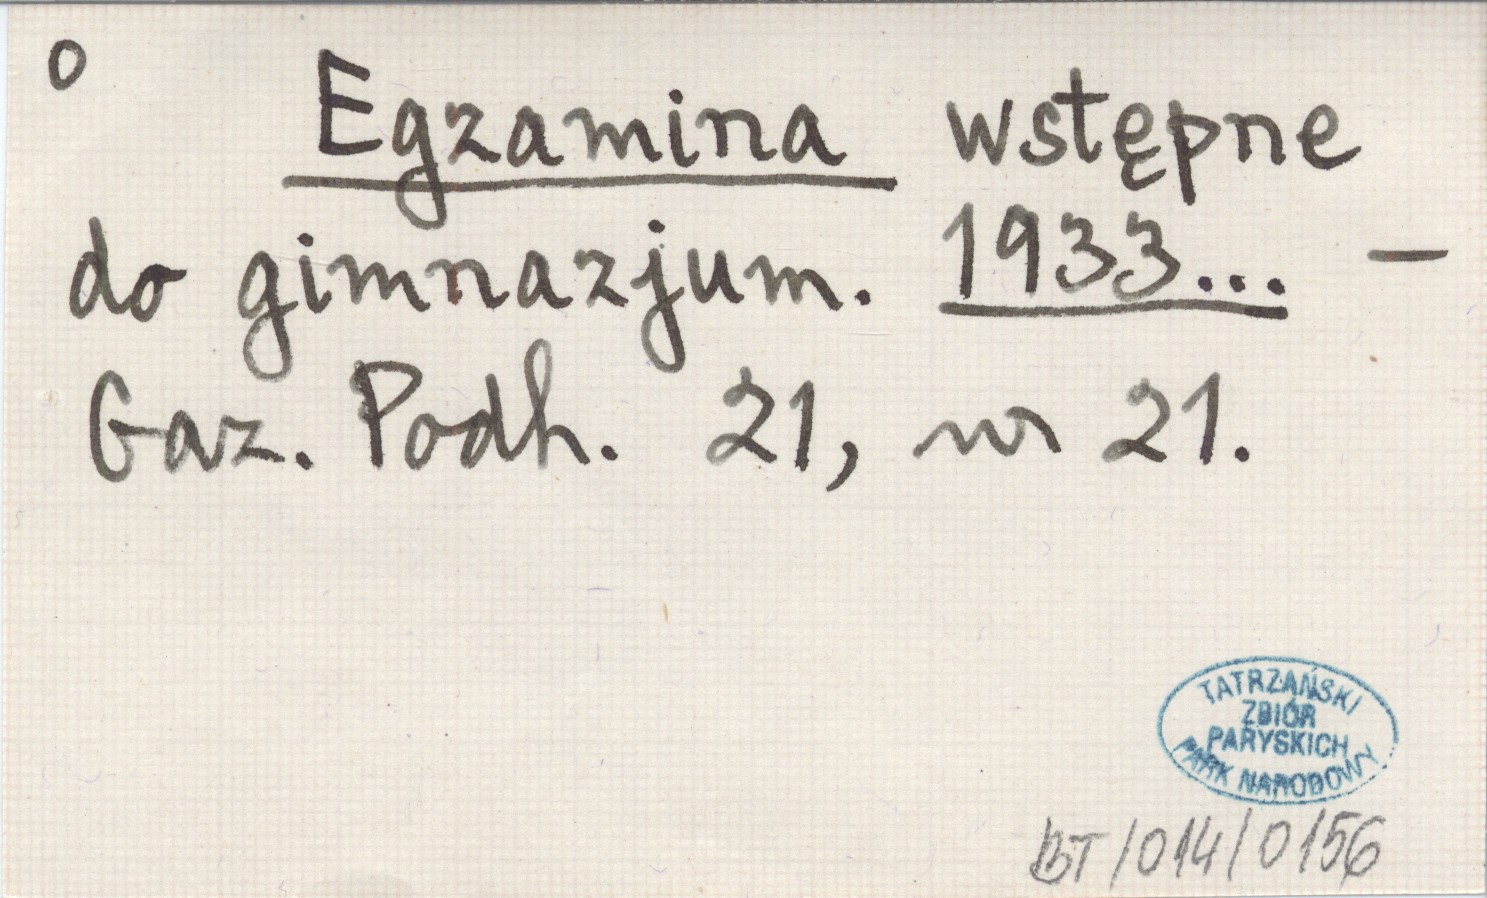 o
Egzamina wstępne
do gimnazjum. 1933... —
Gaz. Podh. 21, nr 21.
TATRZAŃSKI
ZBIÓR
PARYSKICH
PARK NARODOWY
BT/014/0156